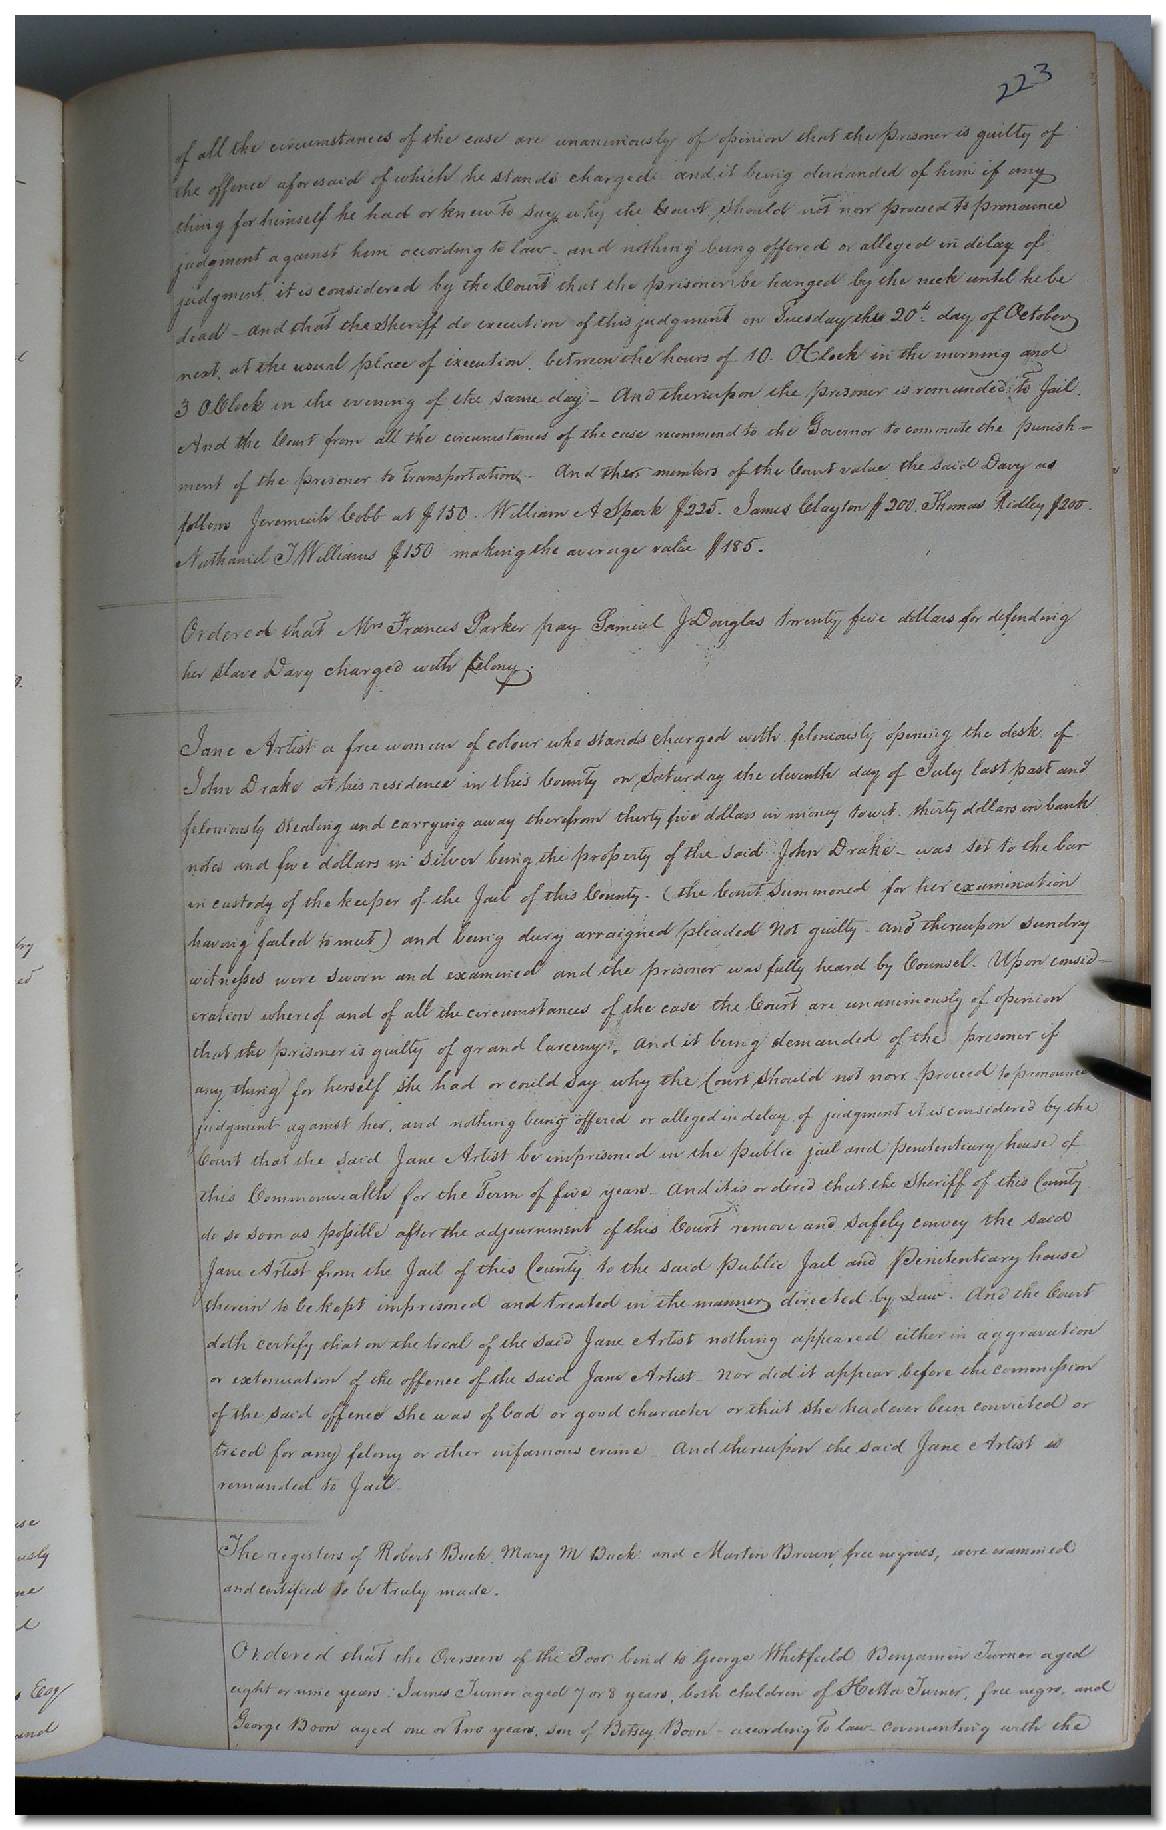 223
of all the circumstances of the case are unanimously of opinion that the prisoner is guilty of
the offence aforesaid of which he stands charged and it being demanded of him if any
thing for himself he had or knew to say why the Court should not now proceed to pronounce
judgment against him according to law - and nothing being offered or alleged in delay of
judgment, it is considered by the Court that the prisoner be hanged by the neck until he be
dead - and that the sheriff do execution of this judgment on Tuesday the 20th. day of October
next, at the usual place of execution, between the hours of 10. OClock in the morning and
3 OClock in the evening of the same day - And thereupon the prisoner is remanded to Jail.
And the Court from all the circumstances of the case recommend to the Governor to commute the punish-
ment of the prisoner to transportation - And the members of the Court value the said Davy as
follows Jeremiah Cobb at $150. William A Spark $225. James Clayton $200. Thomas Ridley $200.
Nathaniel T Williams $150 making the average value $185.
Ordered that Mrs Frances Parker pay Samuel J Douglas twenty five dollars for defending
her slave Davy charged with felony.
Jane Artist a free woman of colour who stands charged with feloniously opening the desk of
John Drake at his residence in this County on Saturday the eleventh day of July last past and
feloniously stealing and carrying away therefrom thirty five dollars in money towit. thirty dollars in bank
notes and five dollars in silver being the property of the said John Drake - was set to the bar
in custody of the keeper of the Jail of this County - (the Court summoned for her examination
having failed to meet) and being duly arraigned pleaded not guilty - and thereupon sundry
witnesses were sworn and examined and the prisoner was fully heard by Counsel. Upon consid-
eration whereof and of all the circumstances of the case the Court are unanimously of opinion
that the prisoner is guilty of grand larceny. And it being demanded of the prisoner if
any thing for herself she had or could say why the Court should not now proceed to pronounce
judgment against her, and nothing being offered or alleged in delay of judgment it is considered by the
Court that the said Jane Artist be imprisoned in the public jail and penitentiary house of
this Commonwealth for the Term of five years - And it is ordered that the Sheriff of this County
do so soon as possible after the adjournment of this Court remove and safely convey the said
Jane Artist from the Jail of this County to the said public Jail and Penitentiary house
therein to be kept imprisoned and treated in the manner directed by Law. And the Court
doth certify that on the trial of the said Jane Artist nothing appeared either in aggravation
or extenuation of the offence of the said Jane Artist - nor did it appear before the commission
of the said offence she was of bad or good character or that she had ever been convicted or
tried for any felony or other infamous crime - And thereupon the said Jane Artist is
remanded to Jail -
The registers of Robert Buck, Mary M Buck and Martin Brown, free negroes, were examined
and certified to be truly made.
Ordered that the Overseers of the Poor bind to George Whitfield Benjamin Turner aged
eight or nine years: James Turner aged 7 or 8 years, both children of Hetta Turner, free negro, and
George Boon aged one or two years, son of Betsey Boon - according to law - covenanting with the